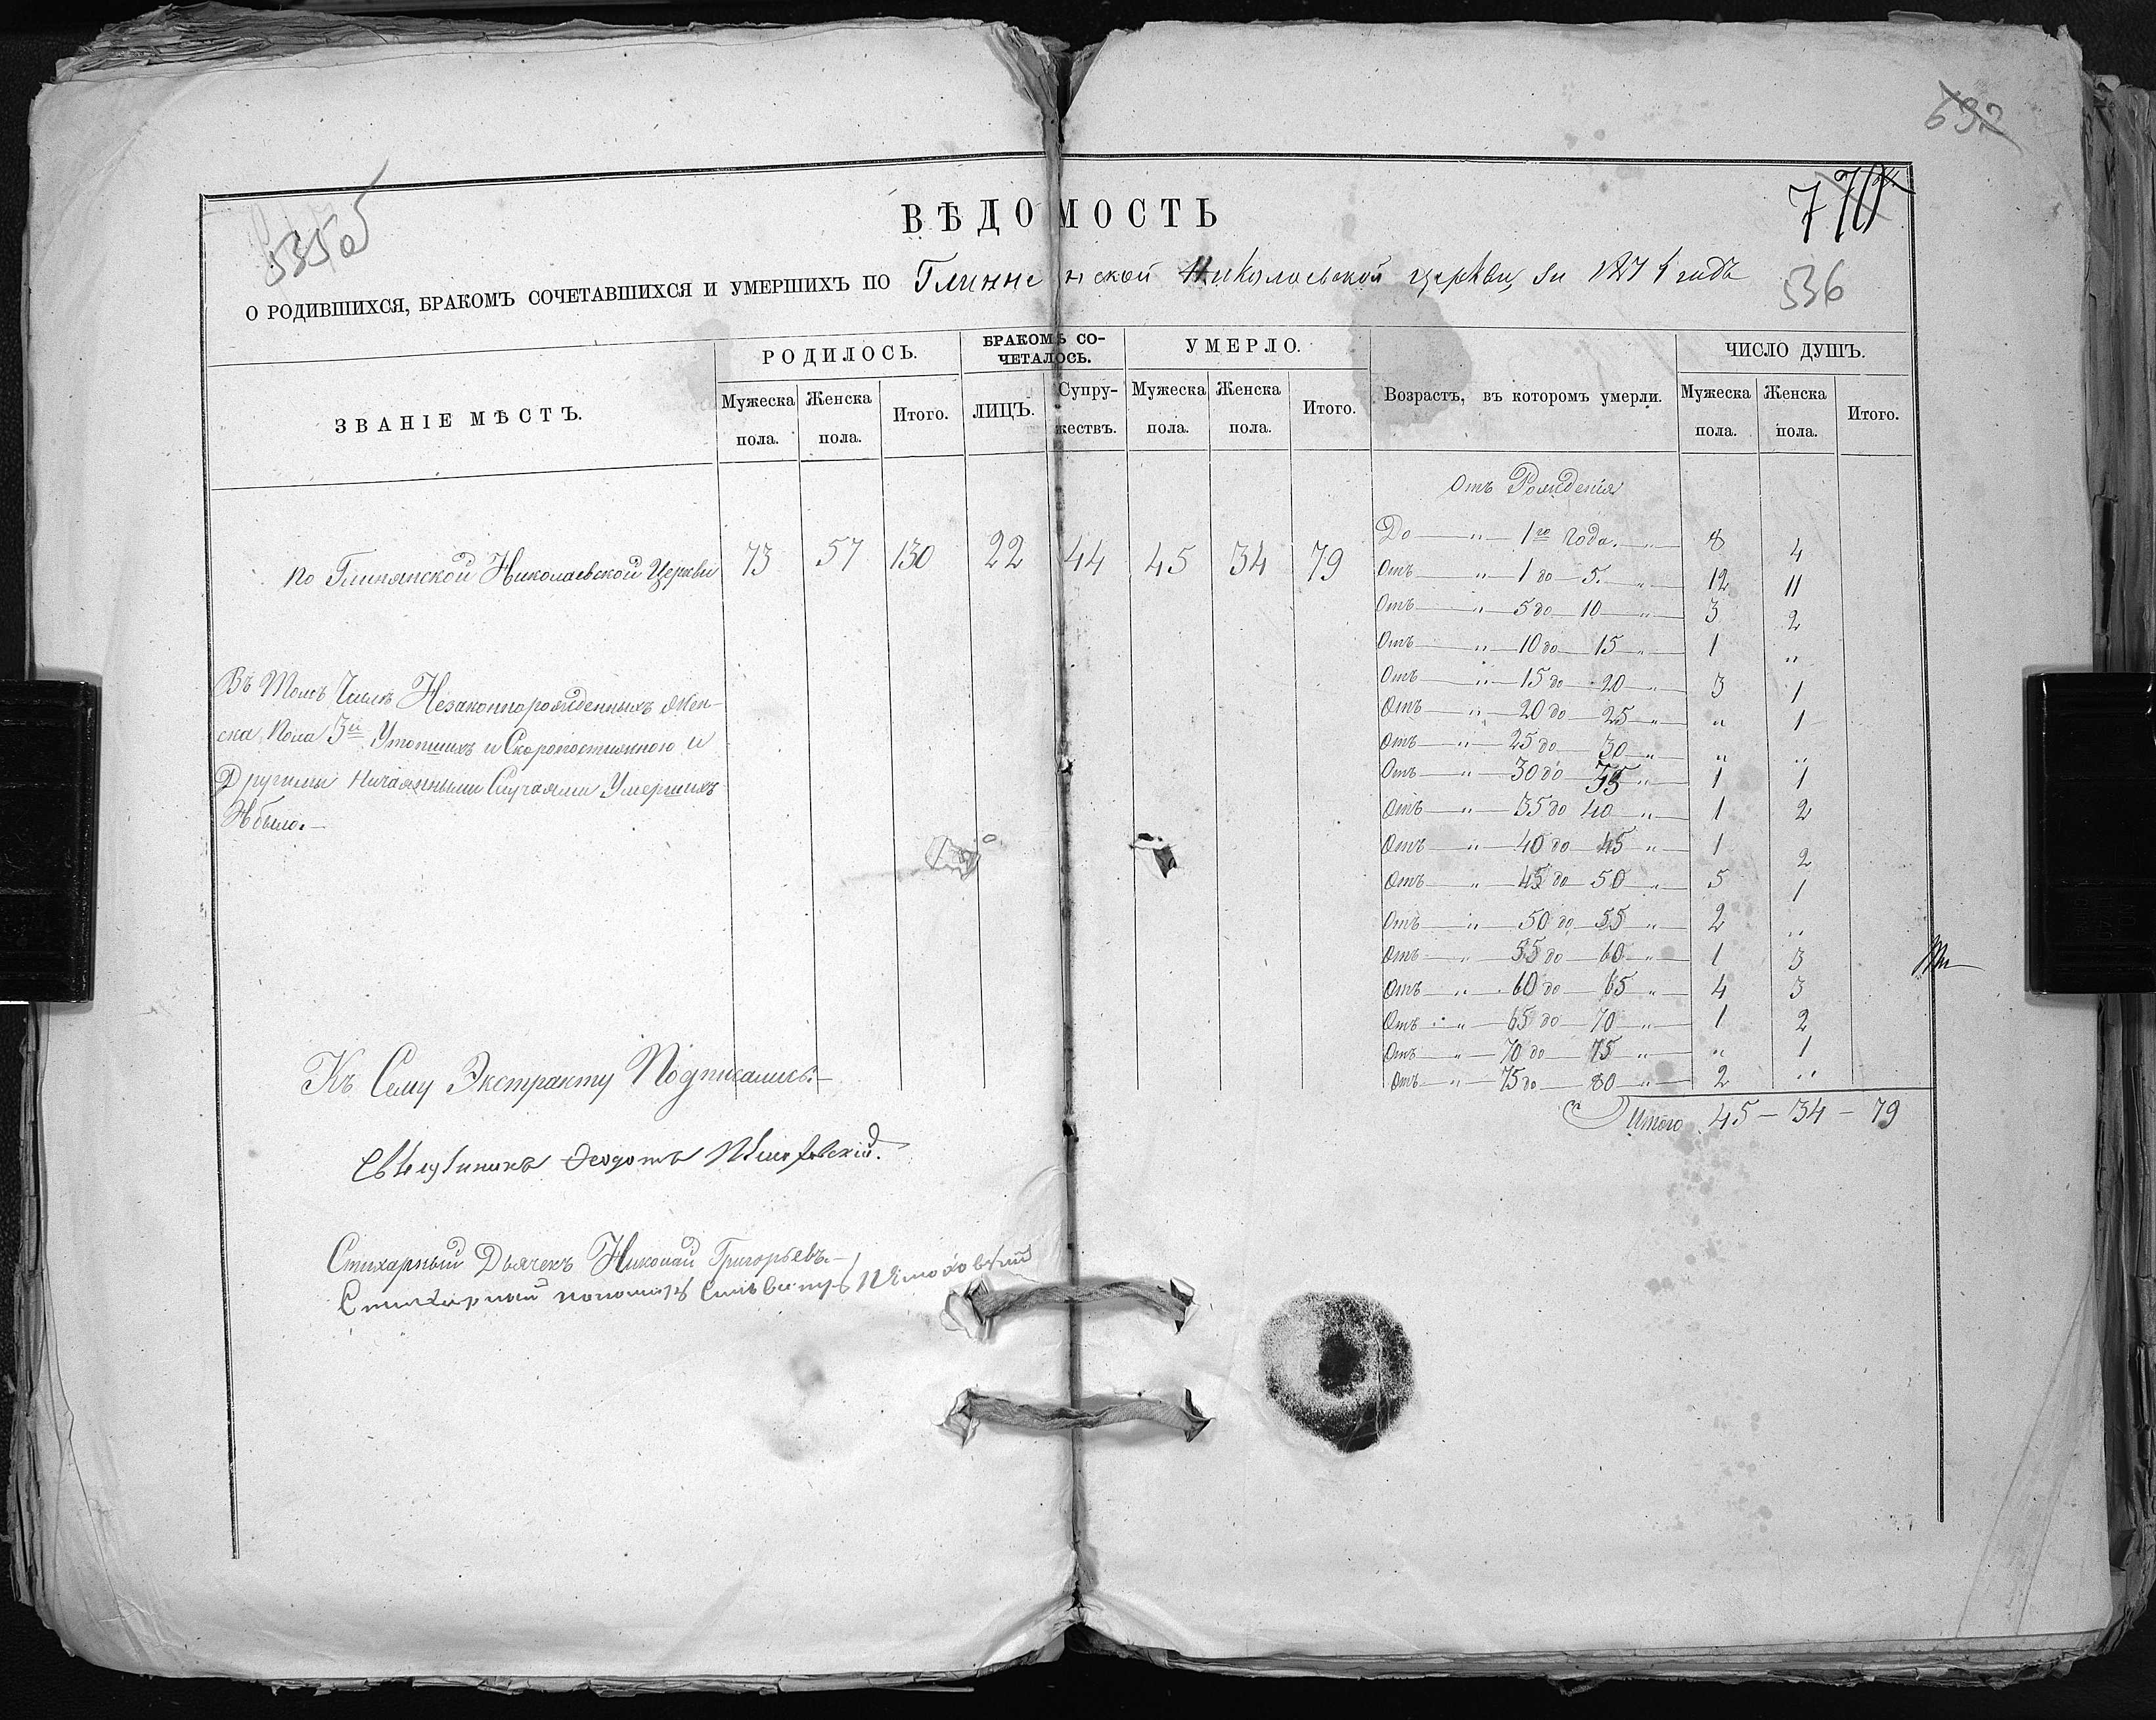 692
535об
770
ВѢДОМОСТЬ
О РОДИВШИХСЯ, БРАКОМЪ СОЧЕТАВШИХСЯ И УМЕРШИХЪ ПО Глинянской Николаевской церкви, за 1871 годъ
536
ЗВАНІЕ МѢСТЪ.
РОДИЛОСЬ.
БРАКОМЪ СО-
ЧЕТАЛОСЬ.
УМЕРЛО.
Возрастъ, въ которомъ умерли.
ЧИСЛО ДУШЪ.
Мужеска пола. Женска пола. Итого. ЛИЦЪ. Супружествъ. Мужеска пола. Женска пола. Итого. Мужеска пола. Женска пола. Итого.
по Глинянской Николаевской Церкви 73 57 130 22 44 45 34 79
Въ Томъ Числѣ Незаконнорожденныхъ жен-
ска Пола 3и Утопшихъ и Скоропостижною и
Другими Нечаянными Случаями Умершихъ
Небыло.—
Отъ Рожденія
До — " — 1го Года. — " — 8 4
Отъ — " — 1 до — 5. — " — 12 11
Отъ — " — 5 до — 10 — " — 3 2
Отъ — " — 10 до — 15 — " — 1 "
Отъ — " — 15 до — 20 — " — 3 1
Отъ — " — 20 до — 25 — " — " 1
Отъ — " — 25 до — 30 — " — " "
Отъ — " — 30 до — 35 — " — 1 1
Отъ — " — 35 до 40 — " — 1 2
Отъ — " — 40 до — 45 — " — 1 2
Отъ — " — 45 до — 50 — " — 5 1
Отъ — " — 50 до — 55 — " — 2 "
Отъ — " — 55 до — 60 — " — 1 3
Отъ — " — 60 до — 65 — " — 4 3
Отъ — " — 65 до — 70 — " — 1 2
Отъ — " — 70 до — 75 — " — " 1
Отъ — " — 75 до — 80 — " — 2 "
Итого 45 — 34 — 79
Къ Сему Экстракту Подписались:—
Священникъ Ѳеодотъ
Стихарный Дьячекъ Николай Григорьевъ.—
Стихарный пономарь